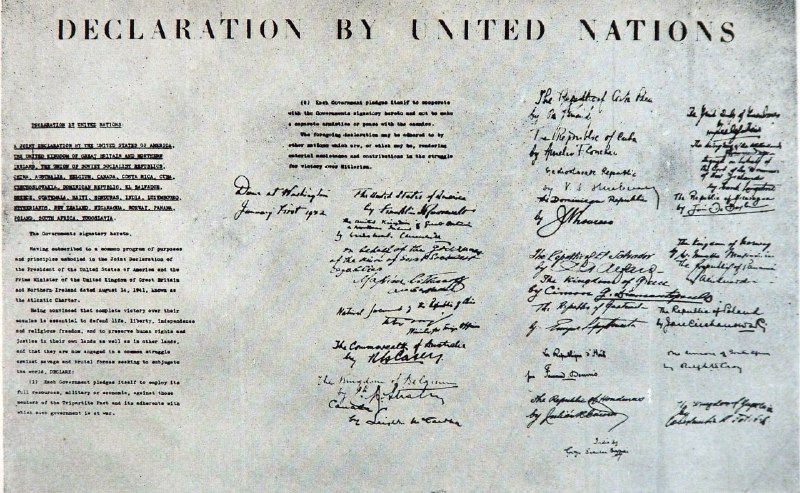 DECLARATION BY UNITED NATIONS
DECLARATION BY UNITED NATIONS:
A JOINT DECLARATION BY THE UNITED STATES OF AMERICA,
THE UNITED KINGDOM OF GREAT BRITAIN AND NORTHERN
IRELAND, THE UNION OF SOVIET SOCIALIST REPUBLICS,
CHINA, AUSTRALIA, BELGIUM, CANADA, COSTA RICA, CUBA,
CZECHOSLOVAKIA, DOMINICAN REPUBLIC, EL SALVADOR,
GREECE, GUATEMALA, HAITI, HONDURAS, INDIA, LUXEMBOURG,
NETHERLANDS, NEW ZEALAND, NICARAGUA, NORWAY, PANAMA,
POLAND, SOUTH AFRICA, YUGOSLAVIA
The Governments signatory hereto,
Having subscribed to a common program of purposes
and principles embodied in the Joint Declaration of
the President of the United States of America and the
Prime Minister of the United Kingdom of Great Britain
and Northern Ireland dated August 14, 1941, known as
the Atlantic Charter.
Being convinced that complete victory over their
enemies is essential to defend life, liberty, independence
and religious freedom, and to preserve human rights and
justice in their own lands as well as in other lands,
and that they are now engaged in a common struggle
against savage and brutal forces seeking to subjugate
the world, DECLARE:
(1) Each Government pledges itself to employ its
full resources, military or economic, against those
members of the Tripartite Pact and its adherents with
which such government is at war.
(2) Each Government pledges itself to cooperate
with the Governments signatory hereto and not to make
a separate armistice or peace with the enemies.
The foregoing declaration may be adhered to by
other nations which are, or which may be, rendering
material assistance and contributions in the struggle
for victory over Hitlerism.
Done at Washington
January First 1942
The United States of America
by Franklin D Roosevelt
The United Kingdom of Great Britain
& Northern Ireland
by Winston S. Churchill
On behalf of the Government
of the Union of Soviet Socialist
Republics
Maxim Litvinoff
Ambassador
National Government of the Republic of China
Minister for Foreign Affairs
The Commonwealth of Australia
by R G Casey
The Kingdom of Belgium
by
Canada
by Leighton McCarthy
The Republic of Costa Rica
by
The Republic of Cuba
by Aurelio F. Concheso
Czechoslovak Republic
by V. S. Hurban
The Dominican Republic
by J M Troncoso
The Republic of El Salvador
by C A Alfaro
The Kingdom of Greece
by Cimon G. Diamantopoulos
The Republic of Guatemala
by
La Republique d'Haiti
par Fernand Dennis
The Republic of Honduras
by Julian R Caceres
India by
Girja Shankar Bajpai
The Grand Duchy of Luxembourg
by
The Kingdom of the Netherlands
Signed on behalf of
the Govt of the Dominion
of New Zealand
by Frank Langstone
The Republic of Nicaragua
by
The Kingdom of Norway
by
The Republic of Panama
by
The Republic of Poland
by Jan Ciechanowski
The Union of South Africa
by Ralph W Close
The Kingdom of Yugoslavia
by Constantin A. Fotitch